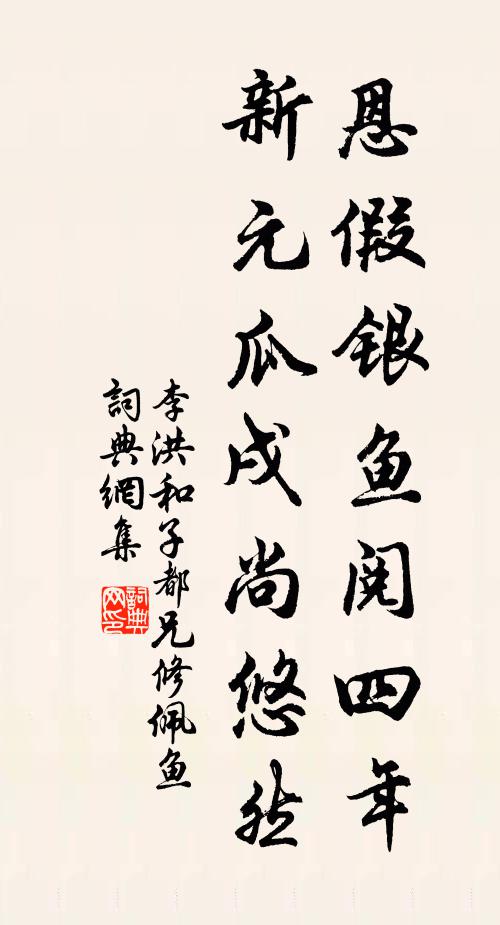 恩假银鱼阅四年
新元瓜戍尚悠然
李洪和子都兄修佩鱼
詞典網集
詞典网印